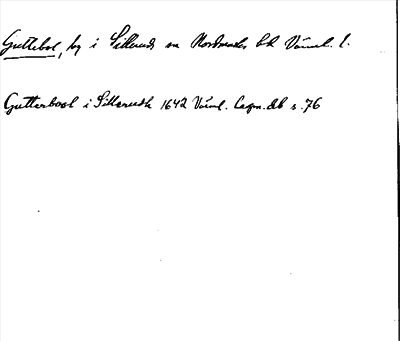 Guttebol, by i Sillerud sn Nordmarks hd Värml. l.
Gutterbool i Sillerudh 1642 Värml. lagm.db s. 76